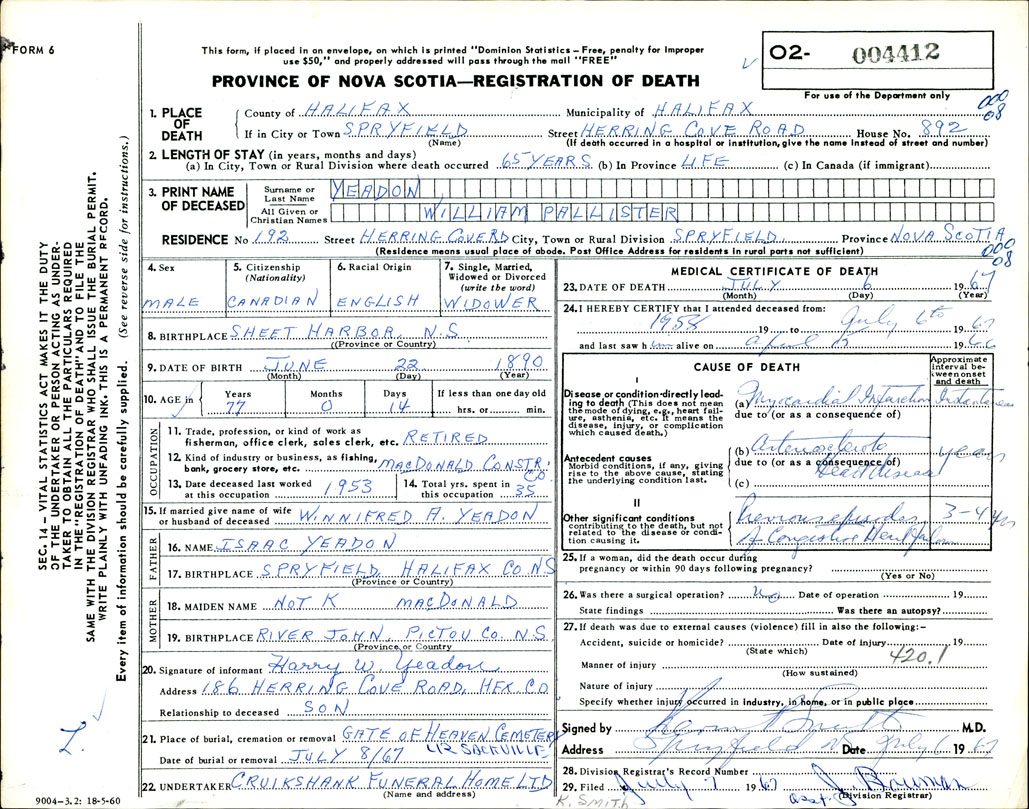 FORM 6
This form, if placed in an envelope, on which is printed "Dominion Statistics – Free, penalty for improper
use $50," and properly addressed will pass through the mail "FREE"
PROVINCE OF NOVA SCOTIA—REGISTRATION OF DEATH
O2- 004412
For use of the Department only
000
08
SEC. 14 – VITAL STATISTICS ACT MAKES IT THE DUTY
OF THE UNDERTAKER OR PERSON ACTING AS UNDER-
TAKER TO OBTAIN ALL THE PARTICULARS REQUIRED
IN THE "REGISTRATION OF DEATH" AND TO FILE THE
SAME WITH THE DIVISION REGISTRAR WHO SHALL ISSUE THE BURIAL PERMIT.
WRITE PLAINLY WITH UNFADING INK. THIS IS A PERMANENT RECORD.
Every item of information should be carefully supplied. (See reverse side for instructions.)
1. PLACE OF DEATH
County of HALIFAX Municipality of HALIFAX
If in City or Town SPRYFIELD Street HERRING COVE ROAD House No. 892
(Name) (If death occurred in a hospital or institution, give the name instead of street and number)
2. LENGTH OF STAY (in years, months and days)
(a) In City, Town or Rural Division where death occurred 65 YEARS (b) In Province LIFE (c) In Canada (if immigrant)
3. PRINT NAME OF DECEASED
Surname or Last Name YEADON
All Given or Christian Names WILLIAM PALLISTER
RESIDENCE No 192 Street HERRING COVE RD City, Town or Rural Division SPRYFIELD Province NOVA SCOTIA
(Residence means usual place of abode. Post Office Address for residents in rural parts not sufficient)
000
08
4. Sex MALE
5. Citizenship (Nationality) CANADIAN
6. Racial Origin ENGLISH
7. Single, Married, Widowed or Divorced (write the word) WIDOWER
8. BIRTHPLACE SHEET HARBOR, N.S
(Province or Country)
9. DATE OF BIRTH JUNE 22 1890
(Month) (Day) (Year)
10. AGE in Years 77 Months 0 Days 14 If less than one day old hrs. or min.
OCCUPATION
11. Trade, profession, or kind of work as
fisherman, office clerk, sales clerk, etc. RETIRED
12. Kind of industry or business, as fishing,
bank, grocery store, etc. MACDONALD CONSTR. CO
13. Date deceased last worked at this occupation 1953
14. Total yrs. spent in this occupation 35
15. If married give name of wife
or husband of deceased WINNIFRED A. YEADON
FATHER
16. NAME ISAAC YEADON
17. BIRTHPLACE SPRYFIELD, HALIFAX CO. NS
(Province or Country)
MOTHER
18. MAIDEN NAME NOT K MACDONALD
19. BIRTHPLACE RIVER JOHN, PICTOU CO. N.S.
(Province, or Country
20. Signature of informant Harry W. Yeadon
Address 186 HERRING COVE ROAD, HFX. CO
Relationship to deceased SON
21. Place of burial, cremation or removal GATE OF HEAVEN CEMETERY
Date of burial or removal JULY 8/67 SACKVILLE
22. UNDERTAKER CRUIKSHANK FUNERAL HOME LTD
(Name and address)
9004–3.2: 18-5-60
MEDICAL CERTIFICATE OF DEATH
23. DATE OF DEATH JULY 6 1967
(Month) (Day) (Year)
24. I HEREBY CERTIFY that I attended deceased from:
1958 19 to July 6th 1967
and last saw him alive on April 1966
CAUSE OF DEATH
Approximate interval between onset and death
I
Disease or condition directly leading to death (This does not mean
the mode of dying, e.g., heart failure, asthenia, etc. It means the
disease, injury, or complication
which caused death.)
(a) Myocardial Infarction Instantaneous
due to (or as a consequence of)
Antecedent causes
Morbid conditions, if any, giving
rise to the above cause, stating
the underlying condition last.
(b) Arteriosclerotic years
due to (or as a consequence of)
Heart Disease
(c)
II
Other significant conditions
contributing to the death, but not
related to the disease or condition causing it.
Previous episodes 3-4 yrs
of Congestive Heart Failure
25. If a woman, did the death occur during
pregnancy or within 90 days following pregnancy?
(Yes or No)
26. Was there a surgical operation? No Date of operation 19
State findings Was there an autopsy?
27. If death was due to external causes (violence) fill in also the following:–
Accident, suicide or homicide? Date of injury 19
(State which) 420.1
Manner of injury
(How sustained)
Nature of injury
Specify whether injury occurred in industry, in home, or in public place
Signed by M.D.
Address Spryfield NS Date July 6 1967
28. Division Registrar's Record Number
29. Filed July 7 1967 J. Bauman
(Division Registrar)
K. SMITH asst.